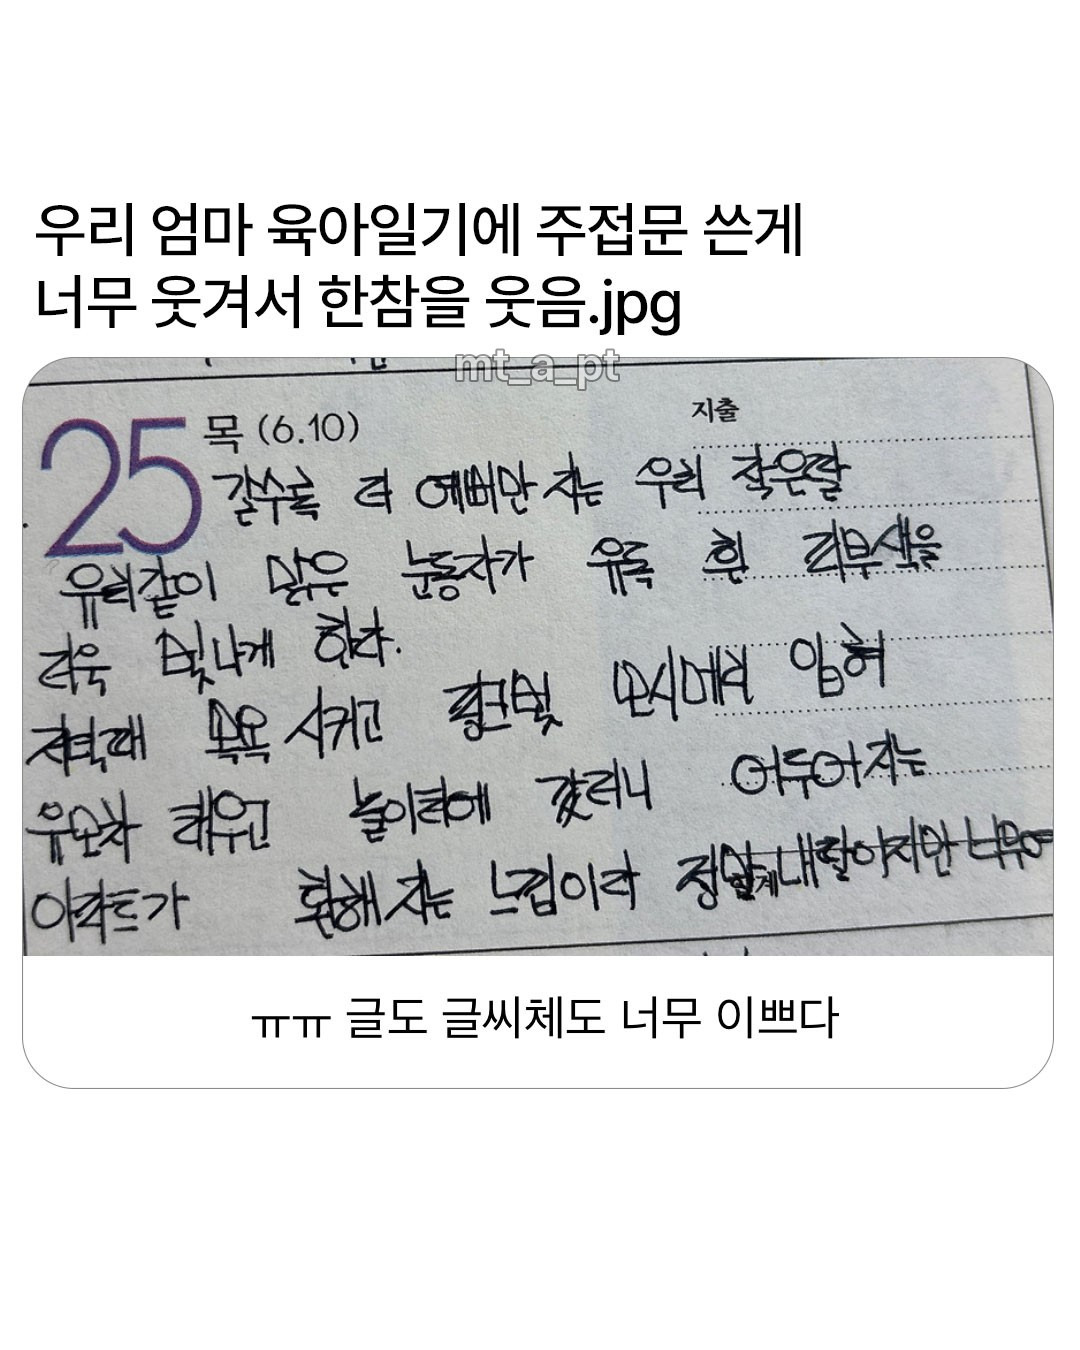 우리 엄마 육아일기에 주접문 쓴게
너무 웃겨서 한참을 웃음.jpg
mt_a_pt
25 목 (6.10)
지출
갈수록 더 예뻐만 지는 우리 작은딸
유리같이 맑은 눈동자가 유독 흰 피부색을
더욱 빛나게 한다.
저녁때 목욕 시키고 핑크빛 모시메리 입혀
유모차 태우고 놀이터에 갔더니 어두어 지는
아파트가 환해 지는 느낌이다 정말 내딸이지만 너무예
ㅠㅠ 글도 글씨체도 너무 이쁘다